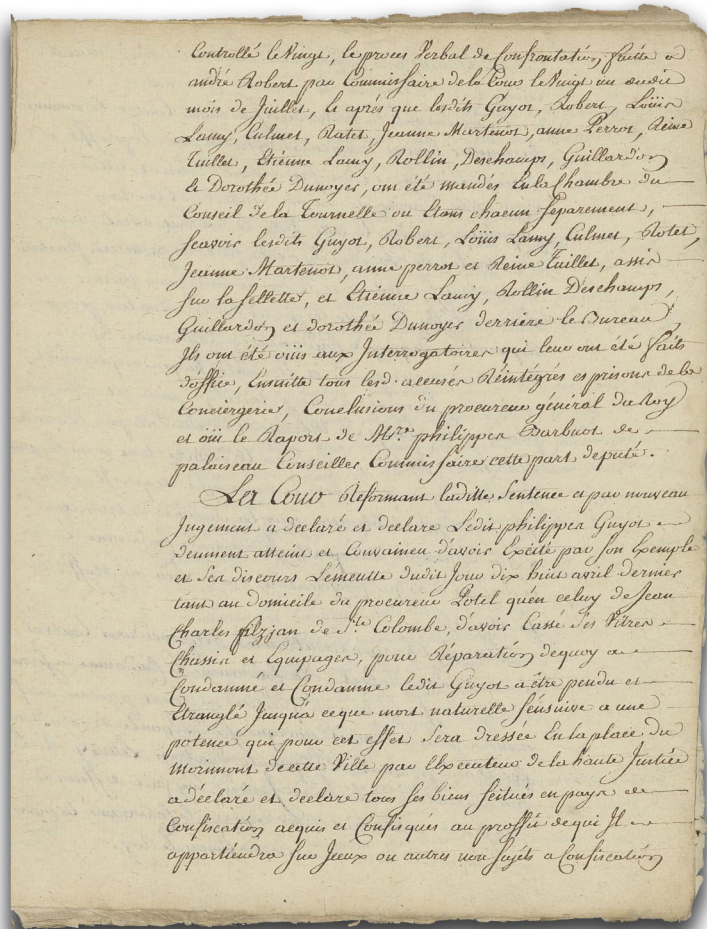 Controllé le Vingt, le proces Verbal de Confrontation faitte a
andré Robert par Commissaire de la Cour le Vingt un dudit
mois de Juillet, et après que lesdits Guyot, Robert, Loüis
Lamy, Culmet, Ratet, Jeanne Martenot, anne Perrot, Reine
Tuillet, Etiénne Lamy, Rollin, Deschamps, Guillardon
et Dorothée Dunoyer, ont été mandés En la Chambre du
Conseil de la Tournelle ou Etans chacun separement,
scavoir lesdits Guyot, Robert, Loüis Lamy, Culmet, Rotet,
Jeanne Martenot, anne perrot et Reine Tuillet, assis
sur la sellette, et Etiénne Lamy, Rollin Deschamps,
Guillardon et dorothée Dunoyer derrière le Bureau,
Ils ont été oüis aux Interrogatoires qui leur ont été faits
d'office, Ensuitte tous lesd. accusés Réintégrés es prisons de la
Conciergerie, Conclusions du procureur général du Roy
et oüi le Raport de Mre. philippes Barbuot de
palaiseau Conseiller Commissaire cette part deputé.
La Cour Réformant laditte Sentence et par nouveau
Jugement a declaré et declare Ledit philippes Guyot
deument atteint et Convaincu d'avoir Excité par son Exemple
et Ses discours L'emeutte dudit Jour dix huit avril dernier
tant au domicile du procureur Potel qu'en celuy de Jean
Charles filzjan de Ste. Colombe, d'avoir Cassé des Vitres
Chassis et Equipages, pour Réparation dequoy a
Condamné et Condamne ledit Guyot a être pendu et
Etranglé Jusqu'a ce que mort naturelle s'ensuive a une
potence qui pour cet effet Sera dressée En la place du
Morimont de cette Ville par L'Executeur de la haute Justice
a déclaré et declare tous ses biens scitués en pays de
Confiscation acquis et Confisqués au proffit de qui Il
appartiendra sur Iceux ou autres non sujets a Confiscation